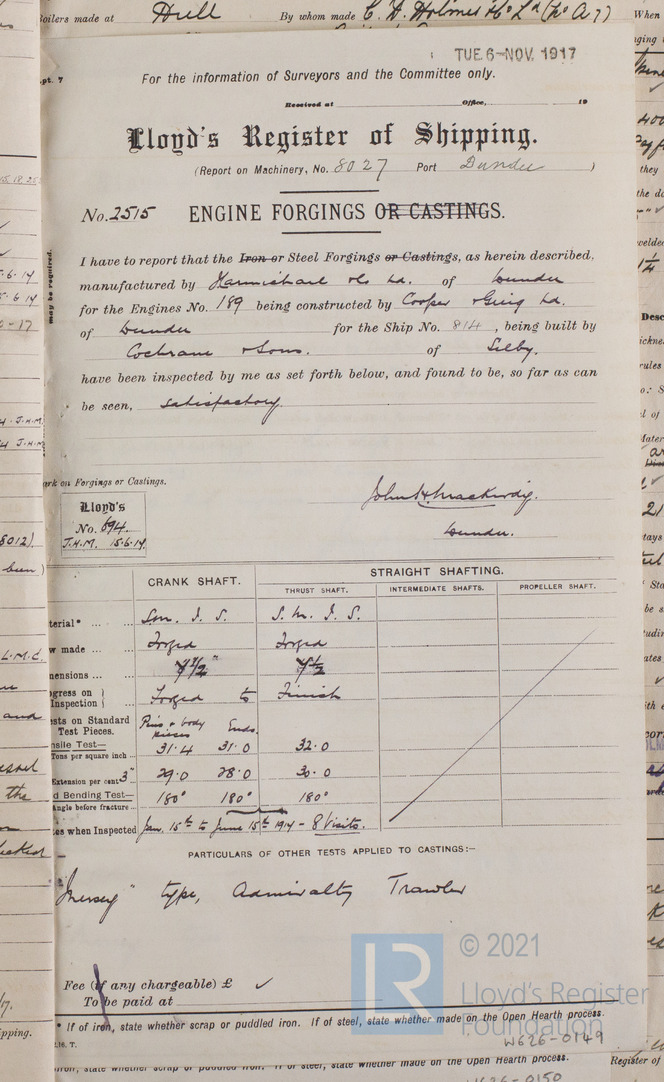 Boilers made at Hull By whom made C. D. Holmes & Co Ld (No A 7)
TUE 6-NOV. 1917
For the information of Surveyors and the Committee only.
Received at Office, 19
Lloyd's Register of Shipping.
(Report on Machinery, No. 8027 Port Dundee )
No. 2515 ENGINE FORGINGS OR CASTINGS.
I have to report that the Iron or Steel Forgings or Castings, as herein described,
manufactured by Ld. of Dundee
for the Engines No. 189 being constructed by Cooper & Greig Ld.
of Dundee for the Ship No. 814, being built by
Cochrane & Sons. of Selby.
have been inspected by me as set forth below, and found to be, so far as can
be seen, satisfactory
John H. Mackurdy.
Dundee.
ark on Forgings or Castings.
Lloyd's
No. 694.
J.H.M. 15.6.17
CRANK SHAFT. STRAIGHT SHAFTING.
THRUST SHAFT. INTERMEDIATE SHAFTS. PROPELLER SHAFT.
terial* ... ... S.m. I. S. S. m. I. S.
w made ... Forged Forged
ensions ...
gress on } Inspection } Forged to Finish
sts on Standard Test Pieces. Pins & body pieces Ends.
nsile Test— Tons per square inch ... 31.4 31.0 32.0
Extension per cent 3" 29.0 28.0 30.0
d Bending Test— ngle before fracture ... 180° 180° 180°
es when Inspected Jan. 15th to June 15th 1917 - 8 Visits.
PARTICULARS OF OTHER TESTS APPLIED TO CASTINGS:—
"Mersey" type, Admiralty Trawler
Fee (if any chargeable) £ ✓
To be paid at
* If of iron, state whether scrap or puddled iron. If of steel, state whether made on the Open Hearth process.
2.16. T.
© 2021
Lloyd's Register
Foundation
W626-0149
iron, state whether scrap or puddled iron. If of steel, state whether made on the Open Hearth process.
W626-0150
Register of